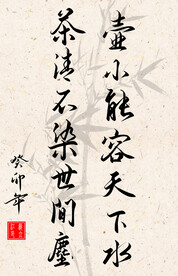 壶小能容天下水
茶清不染世間塵
癸卯年